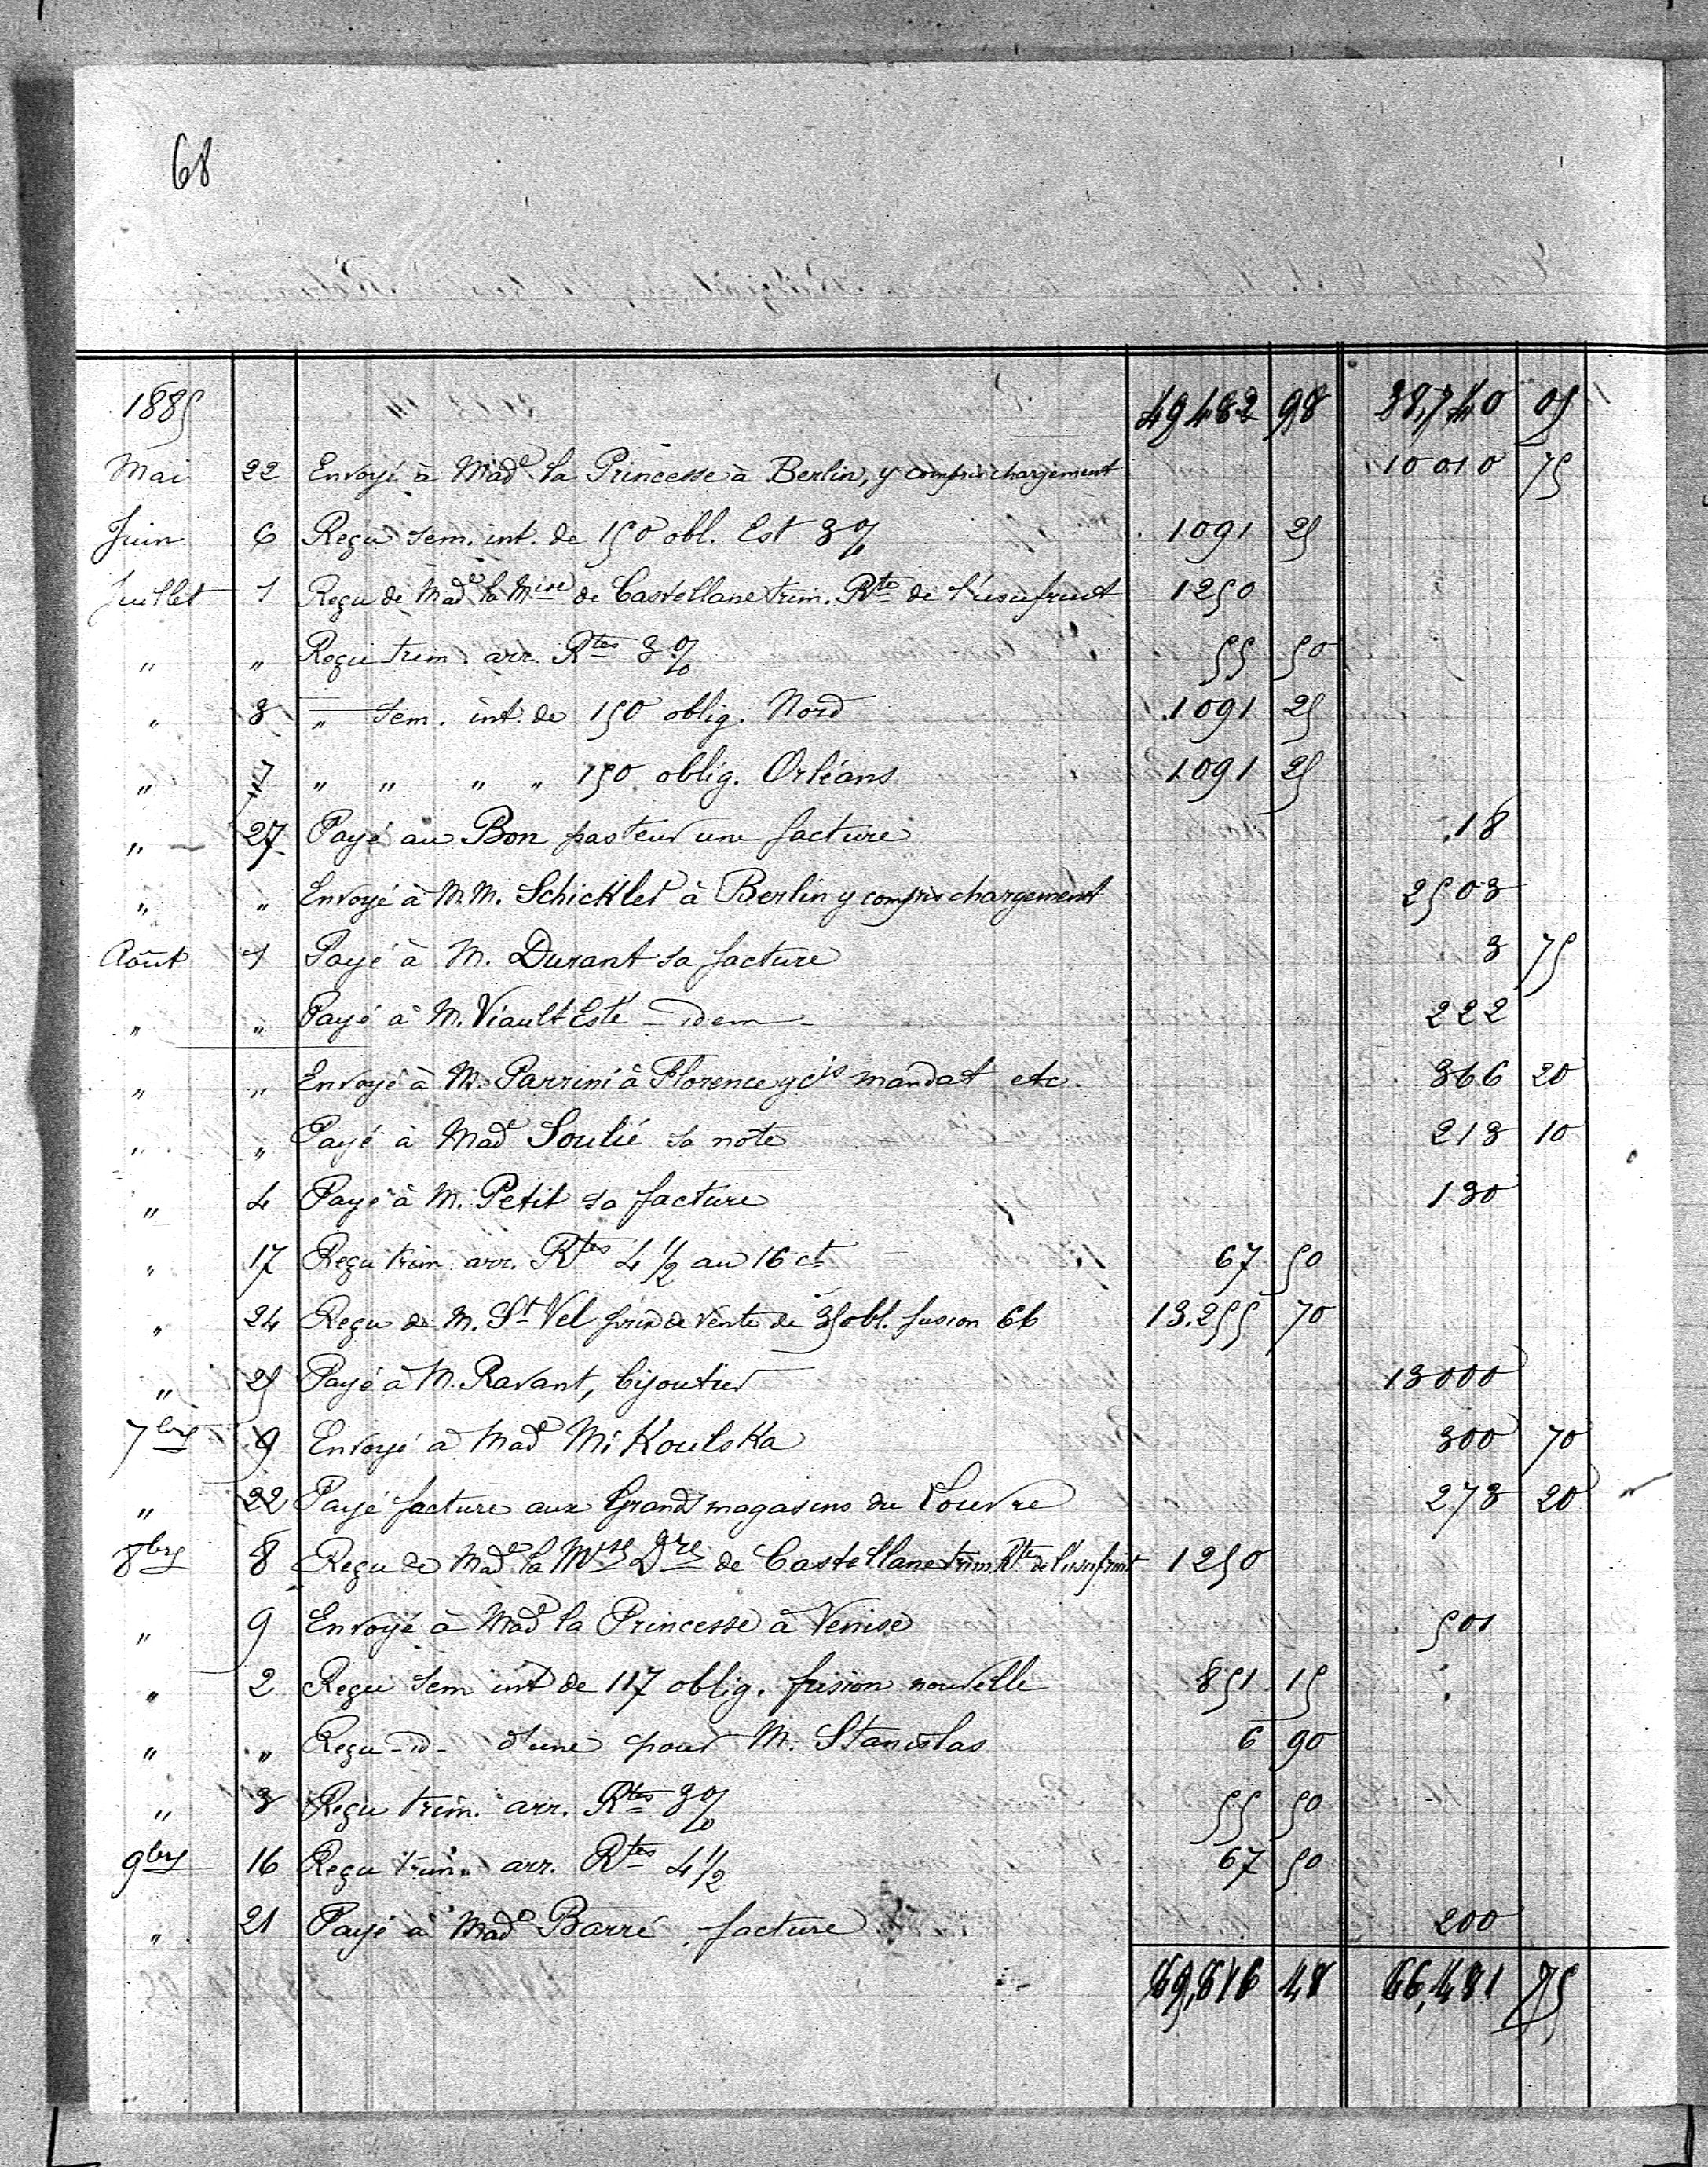 68
1885 49482 98 38,740 05
Mai 22 Envoyé à Made la Princesse à Berlin, y compris chargement 10010 75
Juin 6 Reçu sem. int. de 150 obl. Est 3% 1091 25
Juillet 1 Reçu de Made la Mise de Castellane trim. Rte de l'usufruit 1250
" " Reçu trim. arr. Rtes 3% 55 50
" 3 " sem. int. de 150 oblig. Nord 1091 25
" 17 " " " " 150 oblig. Orléans 1091 25
" 27 Payé au Bon pasteur une facture 18
" " Envoyé à M.M. Schickler à Berlin y compris chargement 2503
Août 1 Payé à M. Durant sa facture 3 75
" " Payé à M. Viault Esté - idem - 222
" " Envoyé à M. Parrini à Florence y cis mandat etc. 366 20
" " Payé à Made Soulié sa note 213 10
" 4 Payé à M. Petit sa facture 130
" 17 Reçu trim arr. Rtes 4 1/2 au 16 ct 67 50
" 24 Reçu de M. St Vel prix de vente de 35 obl. fusion 66 13.255 70
" 25 Payé à M. Ravant, bijoutier 13000
7bre 9 Envoyé à Made Mikoulska 300 70
" 22 Payé facture aux Grands magasins du Louvre 273 20
8bre 8 Reçu de Made la Mise Dre de Castellane trim. Rte de l'usufruit 1250
" 9 Envoyé à Made la Princesse à Venise 501
" 2 Reçu sem int de 117 oblig. fusion nouvelle 851 15
" " Reçu -d- d'une pour M. Stanislas 6 90
" 3 Reçu trim. arr. Rtes 3% 55 50
9bre 16 Reçu trim. arr. Rtes 4 1/2 67 50
" 21 Payé à Made Barré, facture 200
69,616 48 66,481 75